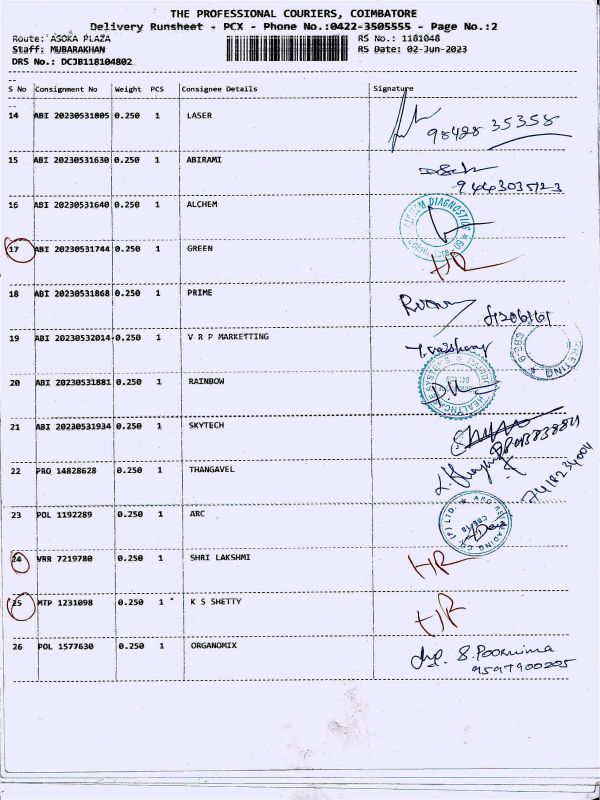 THE PROFESSIONAL COURIERS, COIMBATORE
Delivery Runsheet - PCX - Phone No.:0422-3505555 - Page No.:2
Route: ASOKA PLAZA RS No.: 1181048
Staff: MUBARAKHAN RS Date: 02-Jun-2023
DRS No.: DCJB118104802
S No Consignment No Weight PCS Consignee Details Signature
14 ABI 20230531805 0.250 1 LASER
98428 35358
15 ABI 20230531630 0.250 1 ABIRAMI
9443035723
16 ABI 20230531640 0.250 1 ALCHEM
17 ABI 20230531744 0.250 1 GREEN HR
18 ABI 20230531868 0.250 1 PRIME
19 ABI 20230532014 0.250 1 V R P MARKETTING
20 ABI 20230531881 0.250 1 RAINBOW
21 ABI 20230531934 0.250 1 SKYTECH
22 PRO 14828628 0.250 1 THANGAVEL
23 POL 1192289 0.250 1 ARC
24 VRR 7219780 0.250 1 SHRI LAKSHMI HR
25 MTP 1231098 0.250 1 K S SHETTY HR
26 POL 1577630 0.250 1 ORGANOMIX S.Poornima
9597900205